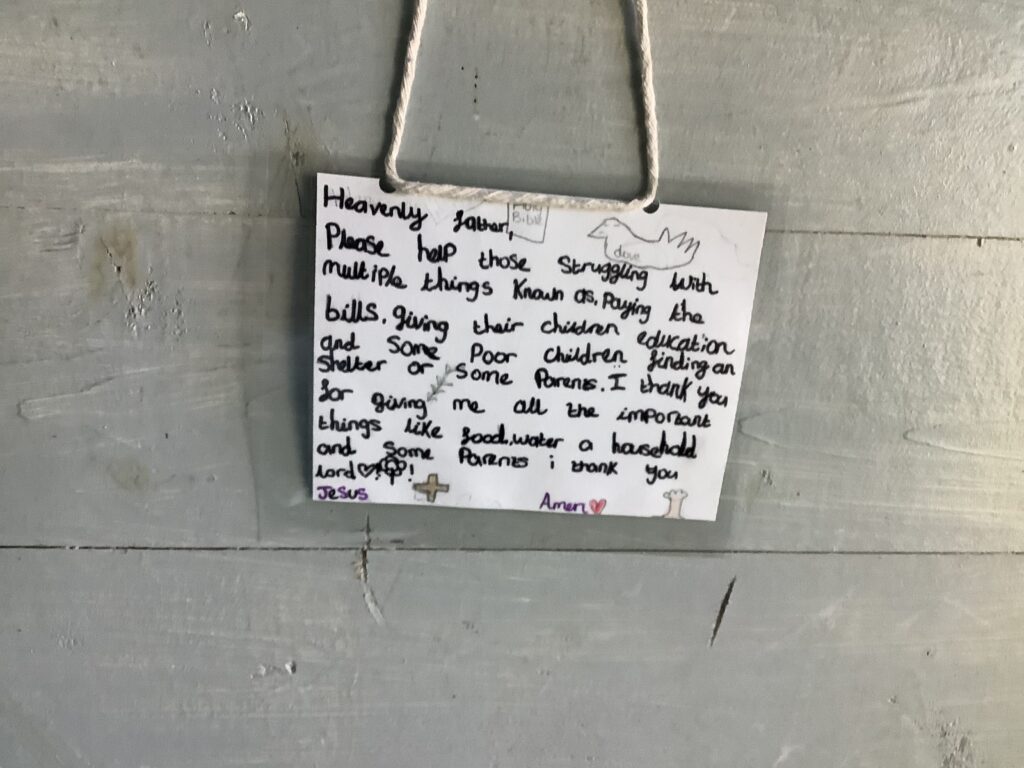 Heavenly father,
Holy
Bible
dove
Please help those struggling with
multiple things known as, paying the
bills, giving their children education
and some poor children finding an
shelter or some parents. I thank you
for giving me all the important
things like food, water a household
and some parents i thank you
lord !
Jesus
Amen